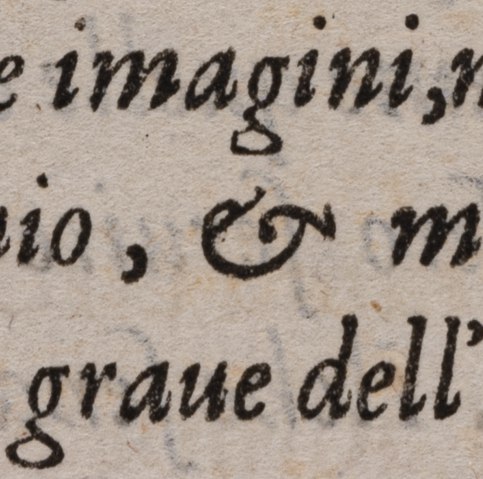 e imagini, n
nio, & m
graue dell'